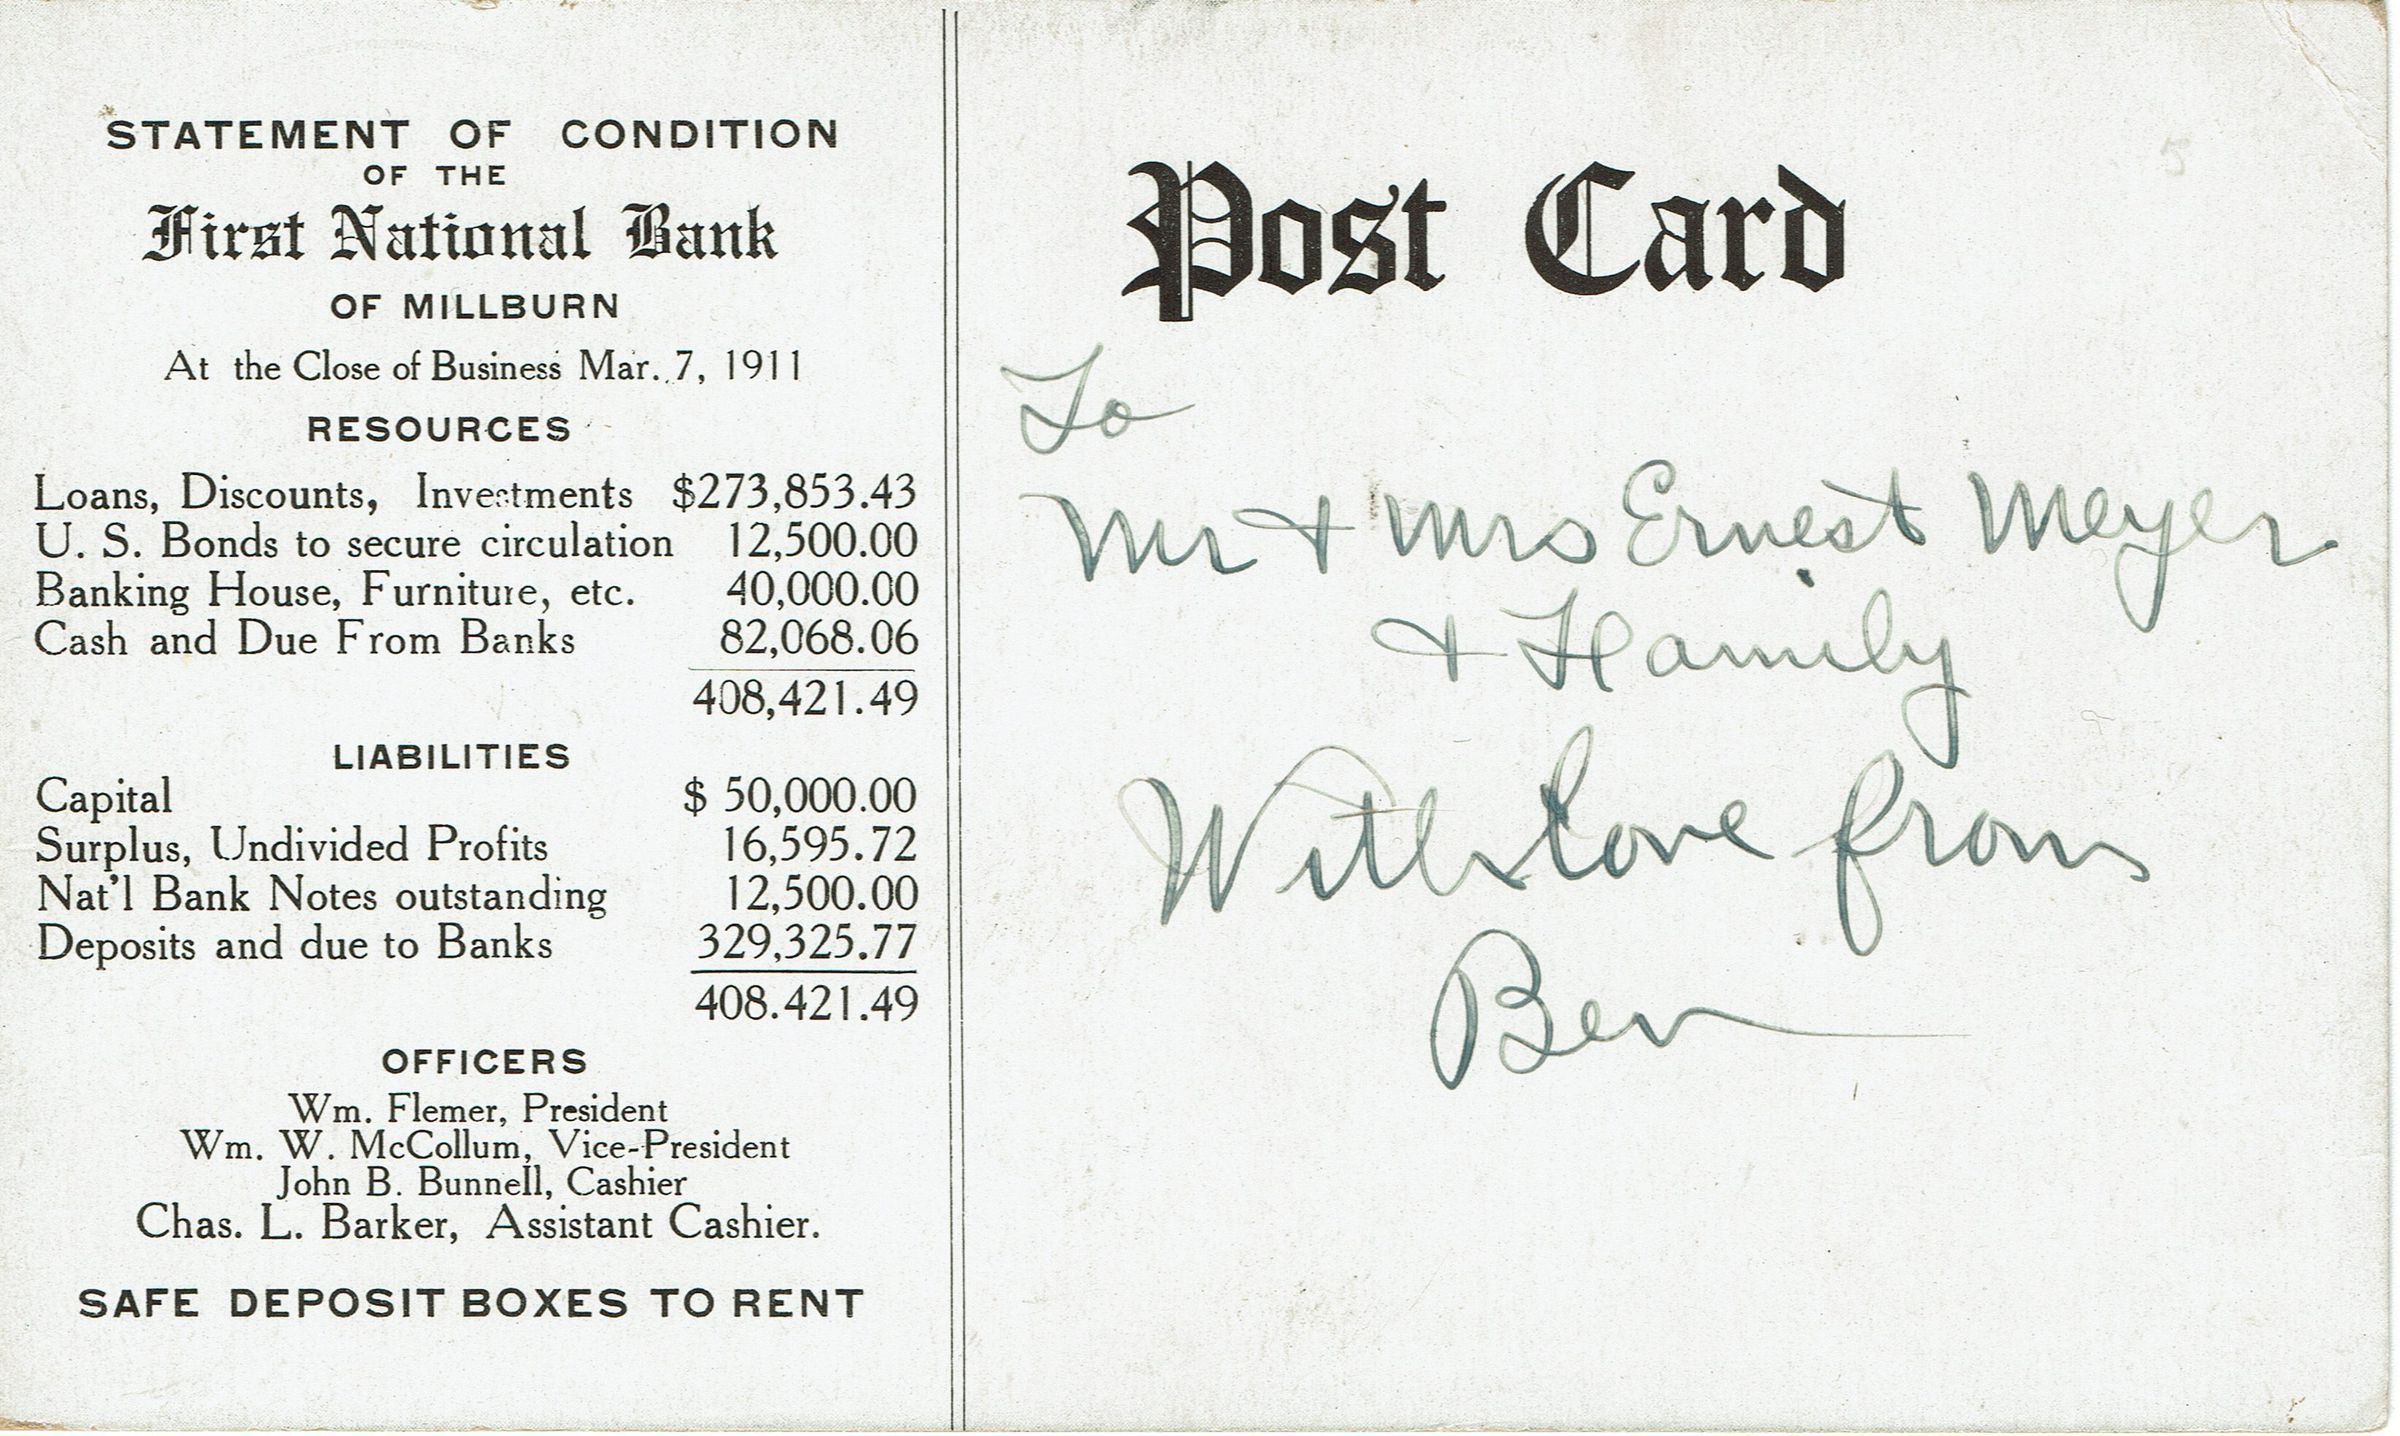 STATEMENT OF CONDITION
OF THE
First National Bank
OF MILLBURN
At the Close of Business Mar. 7, 1911
RESOURCES
Loans, Discounts, Investments $273,853.43
U. S. Bonds to secure circulation 12,500.00
Banking House, Furniture, etc. 40,000.00
Cash and Due From Banks 82,068.06
408,421.49
LIABILITIES
Capital $ 50,000.00
Surplus, Undivided Profits 16,595.72
Nat'l Bank Notes outstanding 12,500.00
Deposits and due to Banks 329,325.77
408.421.49
OFFICERS
Wm. Flemer, President
Wm. W. McCollum, Vice-President
John B. Bunnell, Cashier
Chas. L. Barker, Assistant Cashier.
SAFE DEPOSIT BOXES TO RENT
Post Card
To
Mr + Mrs Ernest Meyer
+ Family
With love from
Ben